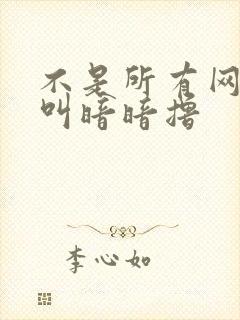 不是所有网
叫暗暗撸
李心如